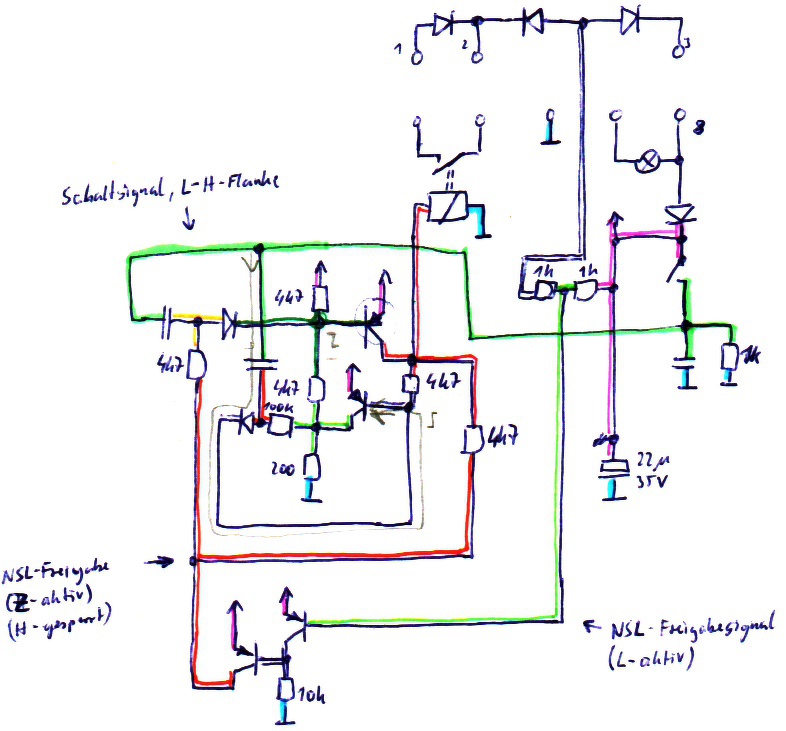 1
2
3
8
Schaltsignal, L-H-Flanke
1k
1k
4k7
4k7
4k7
4k7
1k
100k
4k7
22µ
35V
200
NSL-Freigabe
(Z-aktiv)
(H-gesperrt)
NSL-Freigabesignal
(L-aktiv)
10k